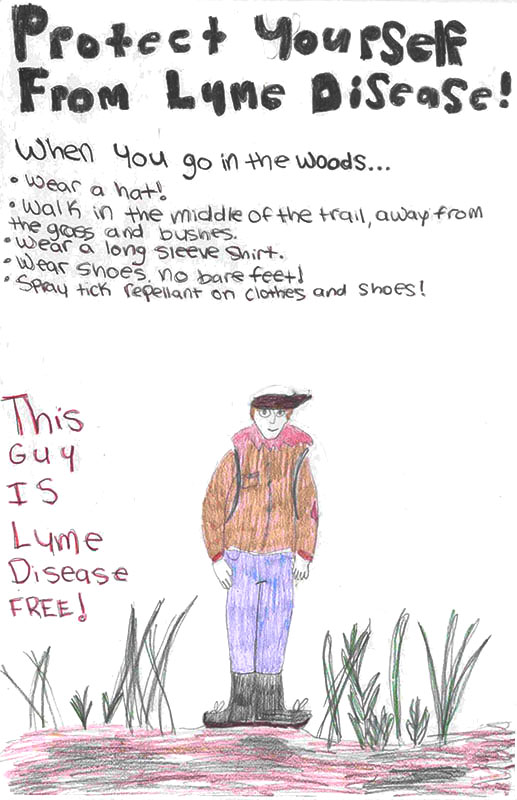 Protect Yourself
From Lyme Disease!
When you go in the woods...
• Wear a hat!
• Walk in the middle of the trail, away from
the grass and bushes.
• Wear a long sleeve shirt.
• Wear shoes, no bare feet!
• Spray tick repellant on clothes and shoes!
This
Guy
IS
Lyme
Disease
FREE!